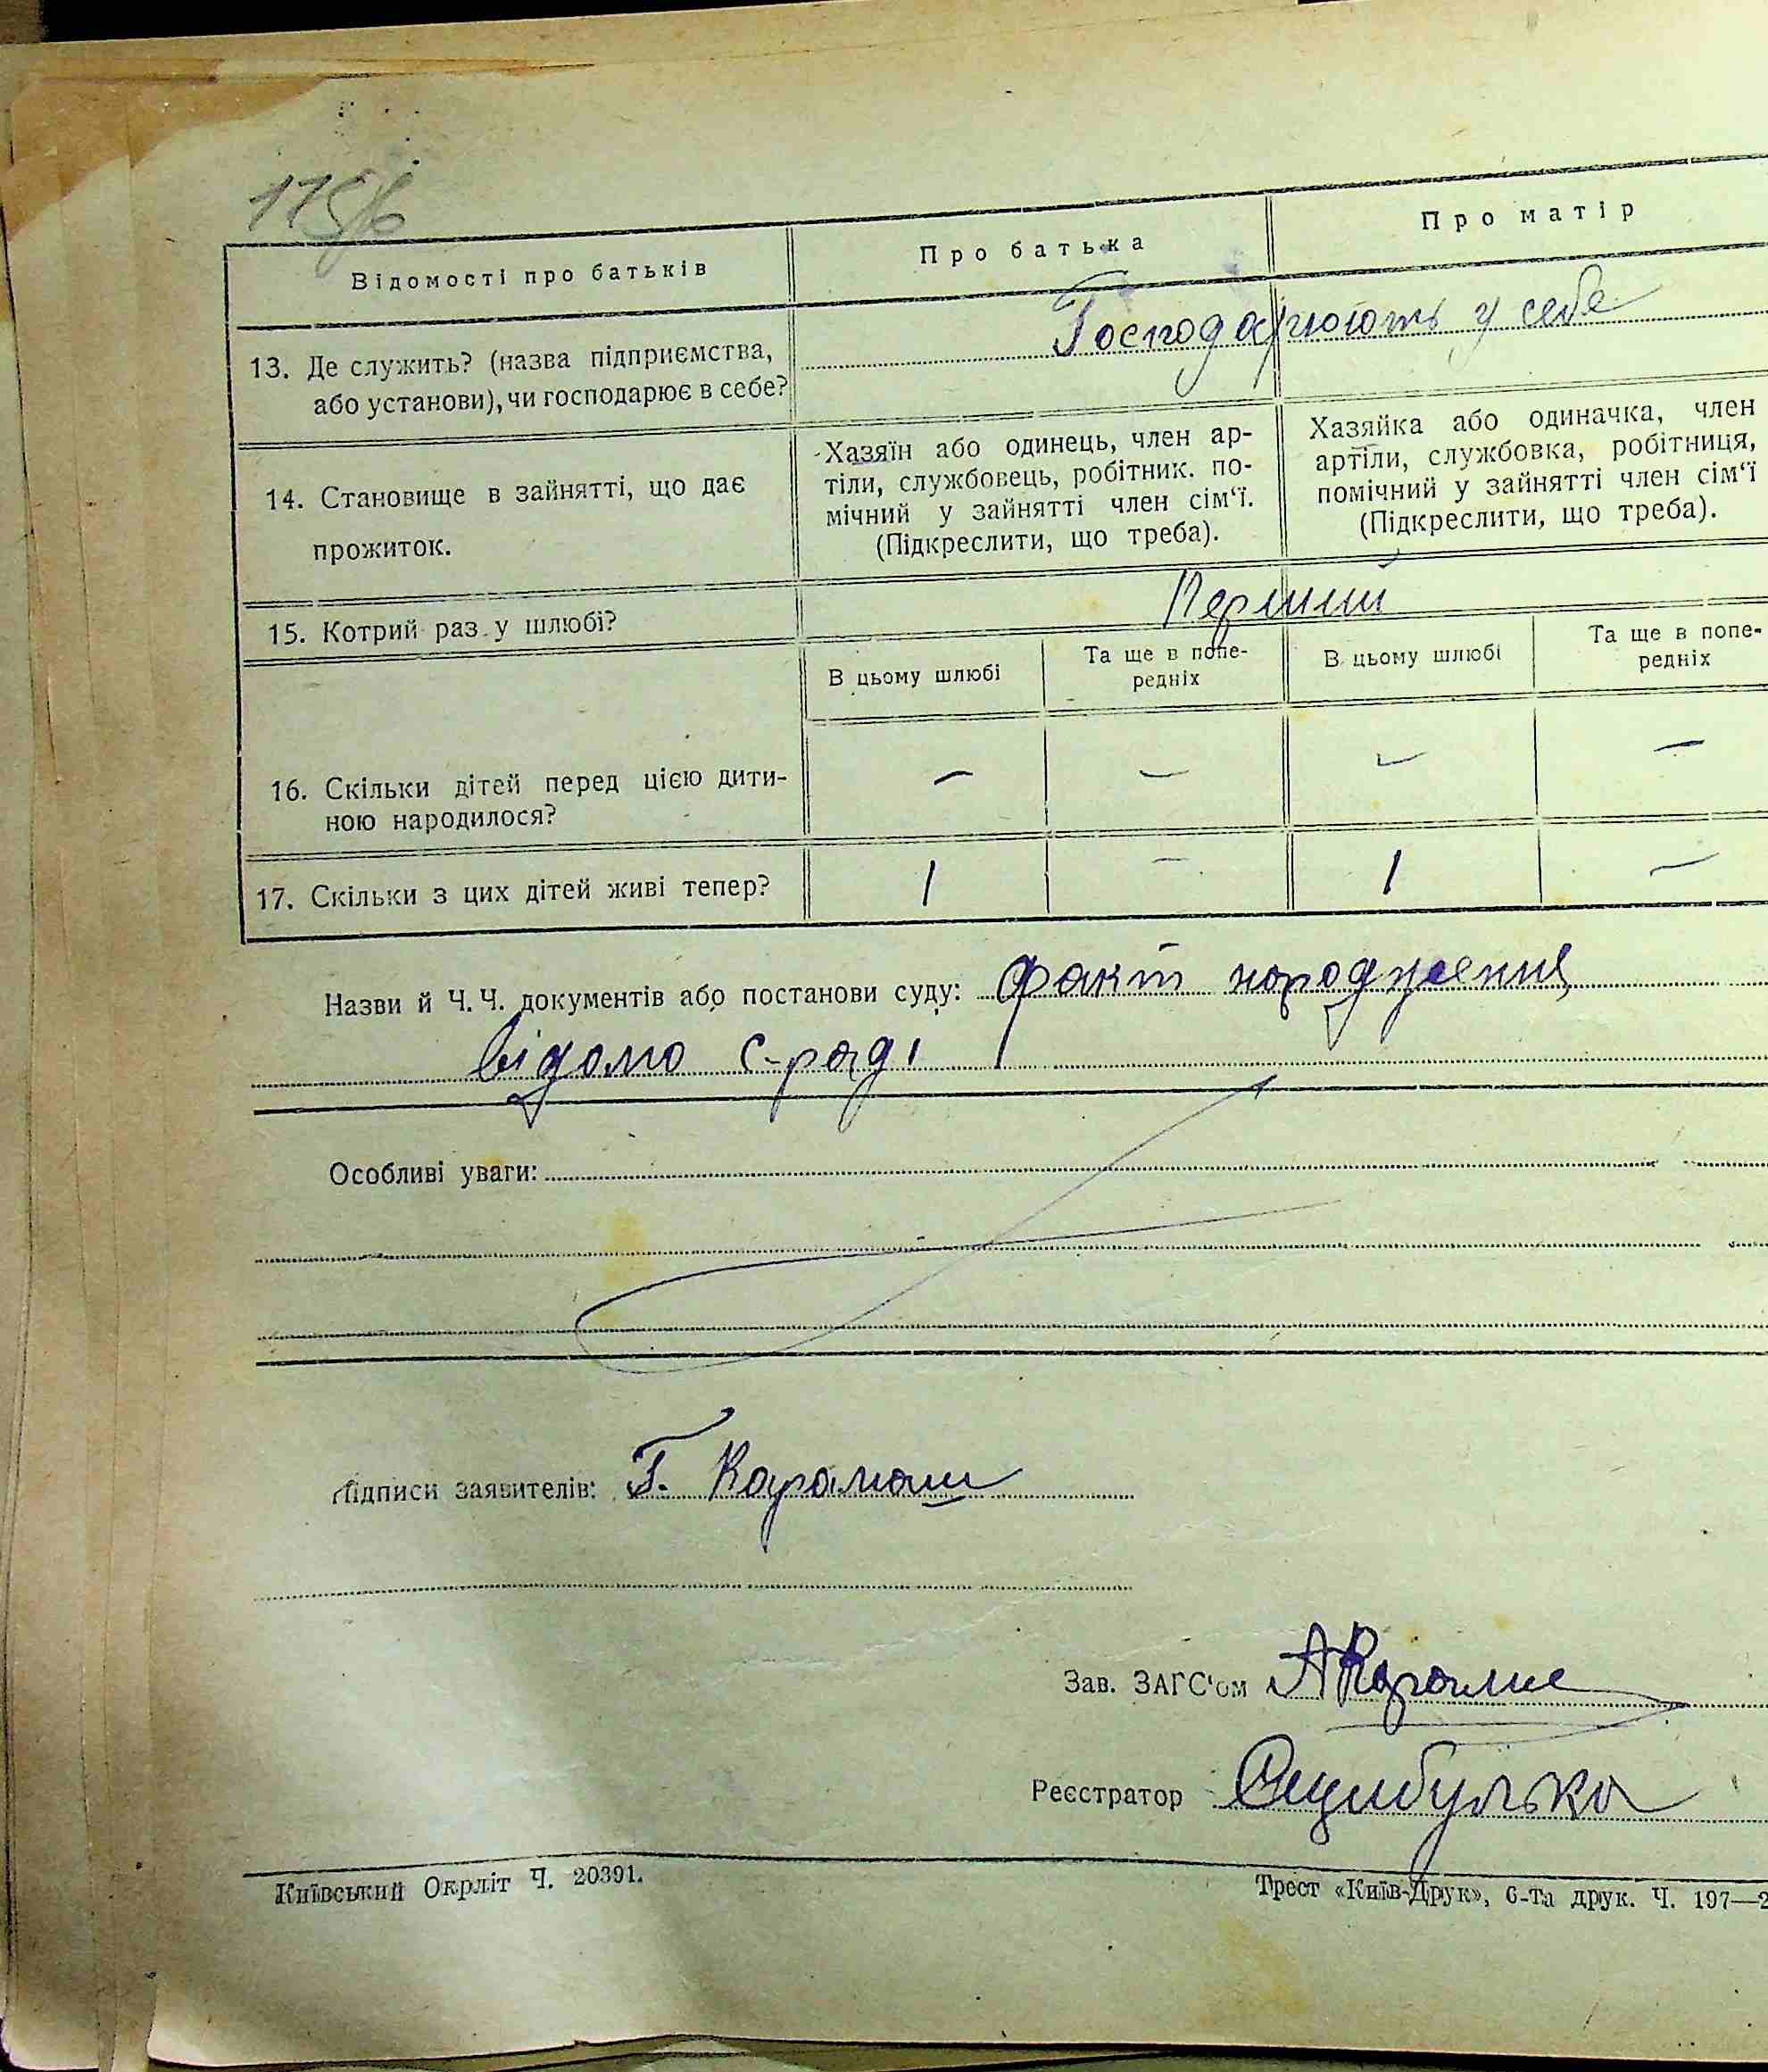 Відомості про батьків
Про батька
Про матір
13. Де служить? (назва підприємства,
або установи), чи господарює в себе?
Господарюють у себе
14. Становище в зайнятті, що дає
прожиток.
Хазяїн або одинець, член ар-
тіли, службовець, робітник. по-
мічний у зайнятті член сім'ї.
(Підкреслити, що треба).
Хазяйка або одиначка, член
артіли, службовка, робітниця,
помічний у зайнятті член сім'ї
(Підкреслити, що треба).
15. Котрий раз у шлюбі?
Перший
В цьому шлюбі
Та ще в попе-
редніх
В цьому шлюбі
Та ще в попе-
редніх
16. Скільки дітей перед цією дити-
ною народилося?
— — — —
17. Скільки з цих дітей живі тепер?
1 — 1 —
Назви й Ч.Ч. документів або постанови суду: факт народження
відомо с-раді
Особливі уваги:
Підписи заявителів: Г. Карамаш
Зав. ЗАГС'ом
Реєстратор
Київський Окрліт Ч. 20391.
Трест «Київ-Друк», 6-та друк. Ч. 197—2